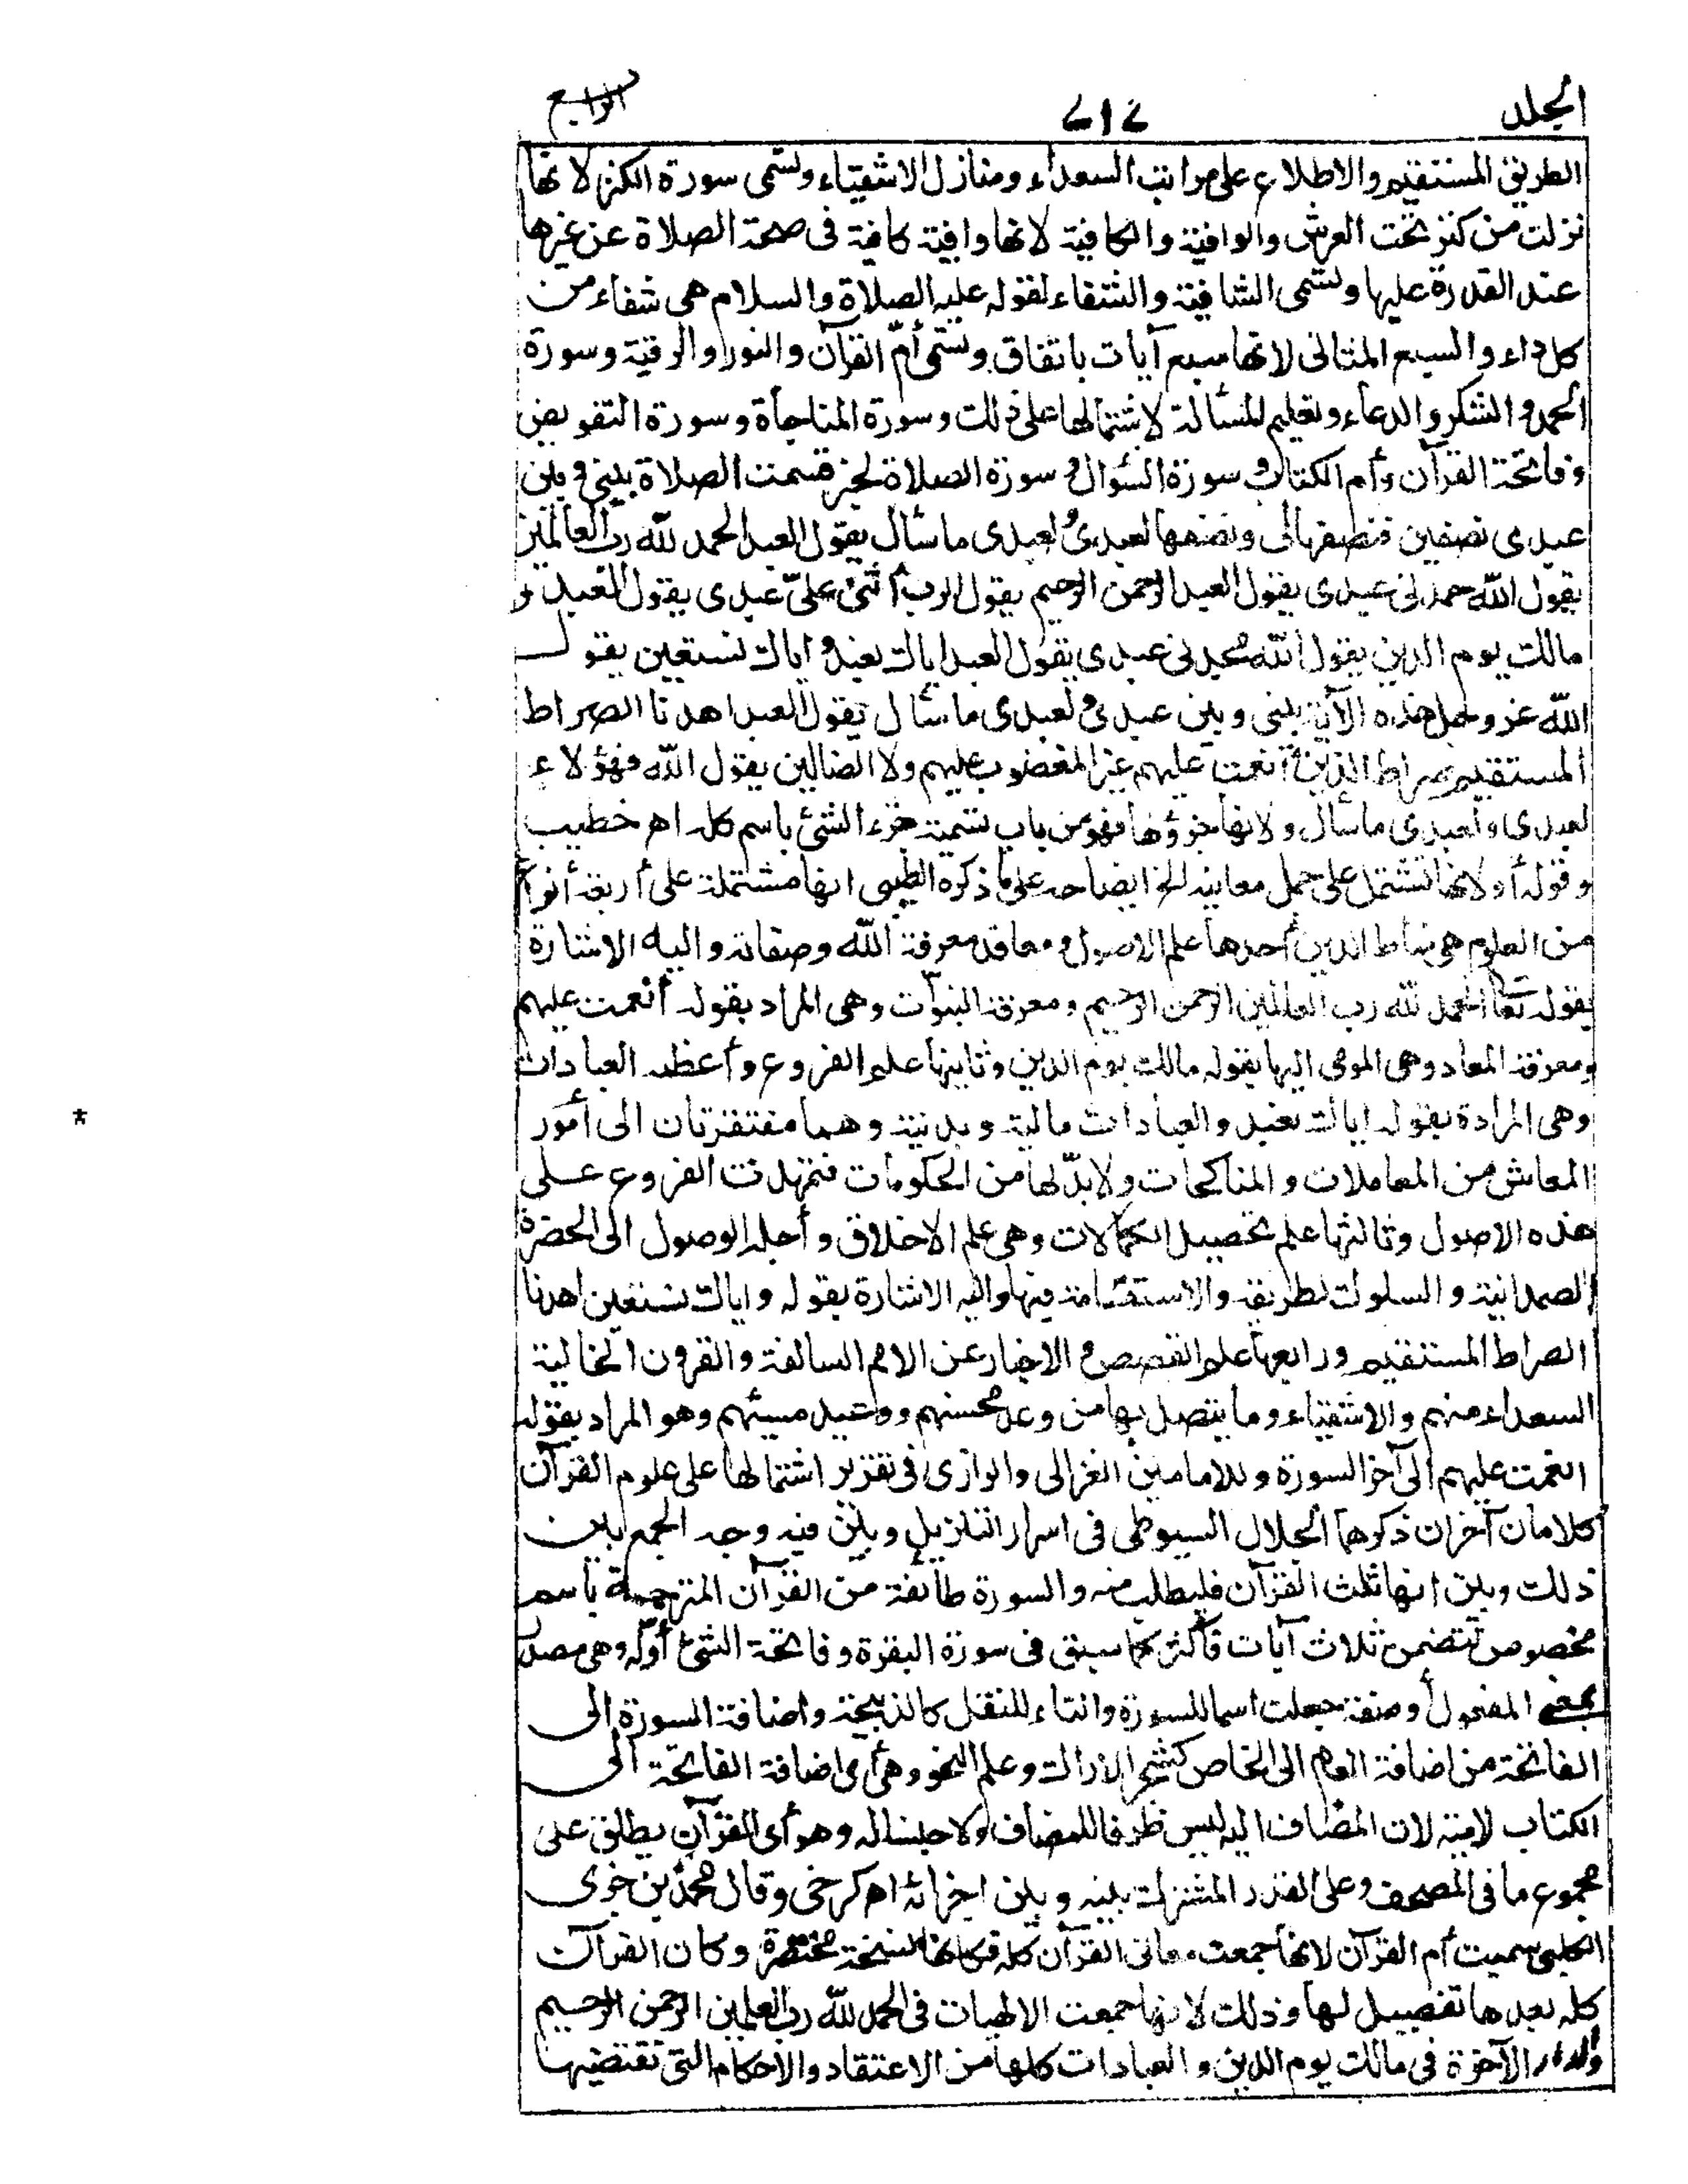 الجلد ٦١٢ الرابع
الطريق المستقيم والاطلاع على مراتب السعداء ومنازل الاشقياء وتسمى سورة الكنز لانها
نزلت من كنز تحت العرش والوافية والكافية لانها وافية كافية فى صحة الصلاة عن غيرها
عند القدرة عليها وتسمى الشافية والشفاء لقوله عليه الصلاة والسلام هى شفاء من
كل داء والسبع المثانى لانها سبع آيات باتفاق وتسمى أمّ القرآن والنور والرقية وسورة
الحمد والشكر والدعاء وتعليم المسألة لاشتمالها على ذلك وسورة المناجاة وسورة التفويض
وفاتحة القرآن وأم الكتاب وسورة السؤال وسورة الصلاة لخبر قسمت الصلاة بينى وبين
عبدى نصفين فنصفها لى ونصفها لعبدى ولعبدى ما سأل يقول العبد الحمد لله رب العالمين
يقول الله حمدنى عبدى يقول العبد الرحمن الرحيم يقول الرب أثنى علىّ عبدى يقول العبد
مالك يوم الدين يقول الله مجدنى عبدى يقول العبد اياك نعبد واياك نستعين يقول
الله عز وجل هذه الآية بينى وبين عبدى ولعبدى ما سأل يقول العبد اهدنا الصراط
المستقيم صراط الذين أنعمت عليهم غير المغضوب عليهم ولا الضالين يقول الله فهؤلاء
لعبدى ولعبدى ما سأل ولانها جزؤها فهو من باب تسمية جزء الشئ باسم كله اهـ خطيب
وقوله أولانها تشتمل على جمل معانيه الخ ايضاحه على ما ذكره الطيبى انها مشتملة على أربعة أنواع
من العلوم هى مناط الدين أحدها علم الاصول ومعاقده معرفة الله وصفاته واليه الاشارة
بقوله تعالى الحمد لله رب العالمين الرحمن الرحيم ومعرفة النبوّات وهى المراد بقوله أنعمت عليهم
ومعرفة المعاد وهى المومى اليها بقوله مالك يوم الدين وثانيها علم الفروع وأعظمه العبادات
وهى المرادة بقوله اياك نعبد والعبادات مالية وبدنية وهما مفتقرتان الى أمور
المعاش من المعاملات والمناكحات ولابدّ لها من الحكومات فتمهدت الفروع على
هذه الاصول وثالثها علم تحصيل الكمالات وهى علم الاخلاق وأجله الوصول الى الحضرة
الصمدانية والسلوك لطريقه والاستقامة فيها واليه الاشارة بقوله واياك نستعين اهدنا
الصراط المستقيم ورابعها علم القصص والاخبار عن الامم السالفة والقرون الخالية
السعداء منهم والاشقياء وما يتصل بها من وعد محسنهم ووعيد مسيئهم وهو المراد بقوله
انعمت عليهم الى آخر السورة وللامامين الغزالى والرازى فى تقرير اشتمالها على علوم القرآن
كلامان آخران ذكرهما الجلال السيوطى فى اسرار التنزيل وبين فيه وجه الجمع بين
ذلك وبين انها ثلث القرآن فليطلب منه والسورة طائفة من القرآن المترجمة باسم
مخصوص تتضمن ثلاث آيات فأكثر كما سبق فى سورة البقرة وفاتحة الشئ أوّله وهى مصدر
بمعنى المفعول أوصفة جعلت اسما للسورة والتاء للنقل كالذبيحة واضافة السورة الى
الفاتحة من اضافة العام الى الخاص كشجر الاراك وعلم النحو وهى أى اضافة الفاتحة الى
الكتاب لامية لان المضاف اليه ليس ظرفا للمضاف ولا جنسا له وهو أى القرآن يطلق على
مجموع ما فى المصحف وعلى القدر المشترك بينه وبين اجزائه اهـ كرخى وقال محمد بن جزى
الكلبى سميت أم القرآن لانها جمعت معانى القرآن كله فكانها نسخة مختصرة وكان القرآن
كله بعدها تفصيل لها وذلك لانها جمعت الالهيات فى الحمد لله رب العلمين الرحمن الرحيم
والدار الآخرة فى مالك يوم الدين والعبادات كلها من الاعتقاد والاحكام التى تقتضيها
*